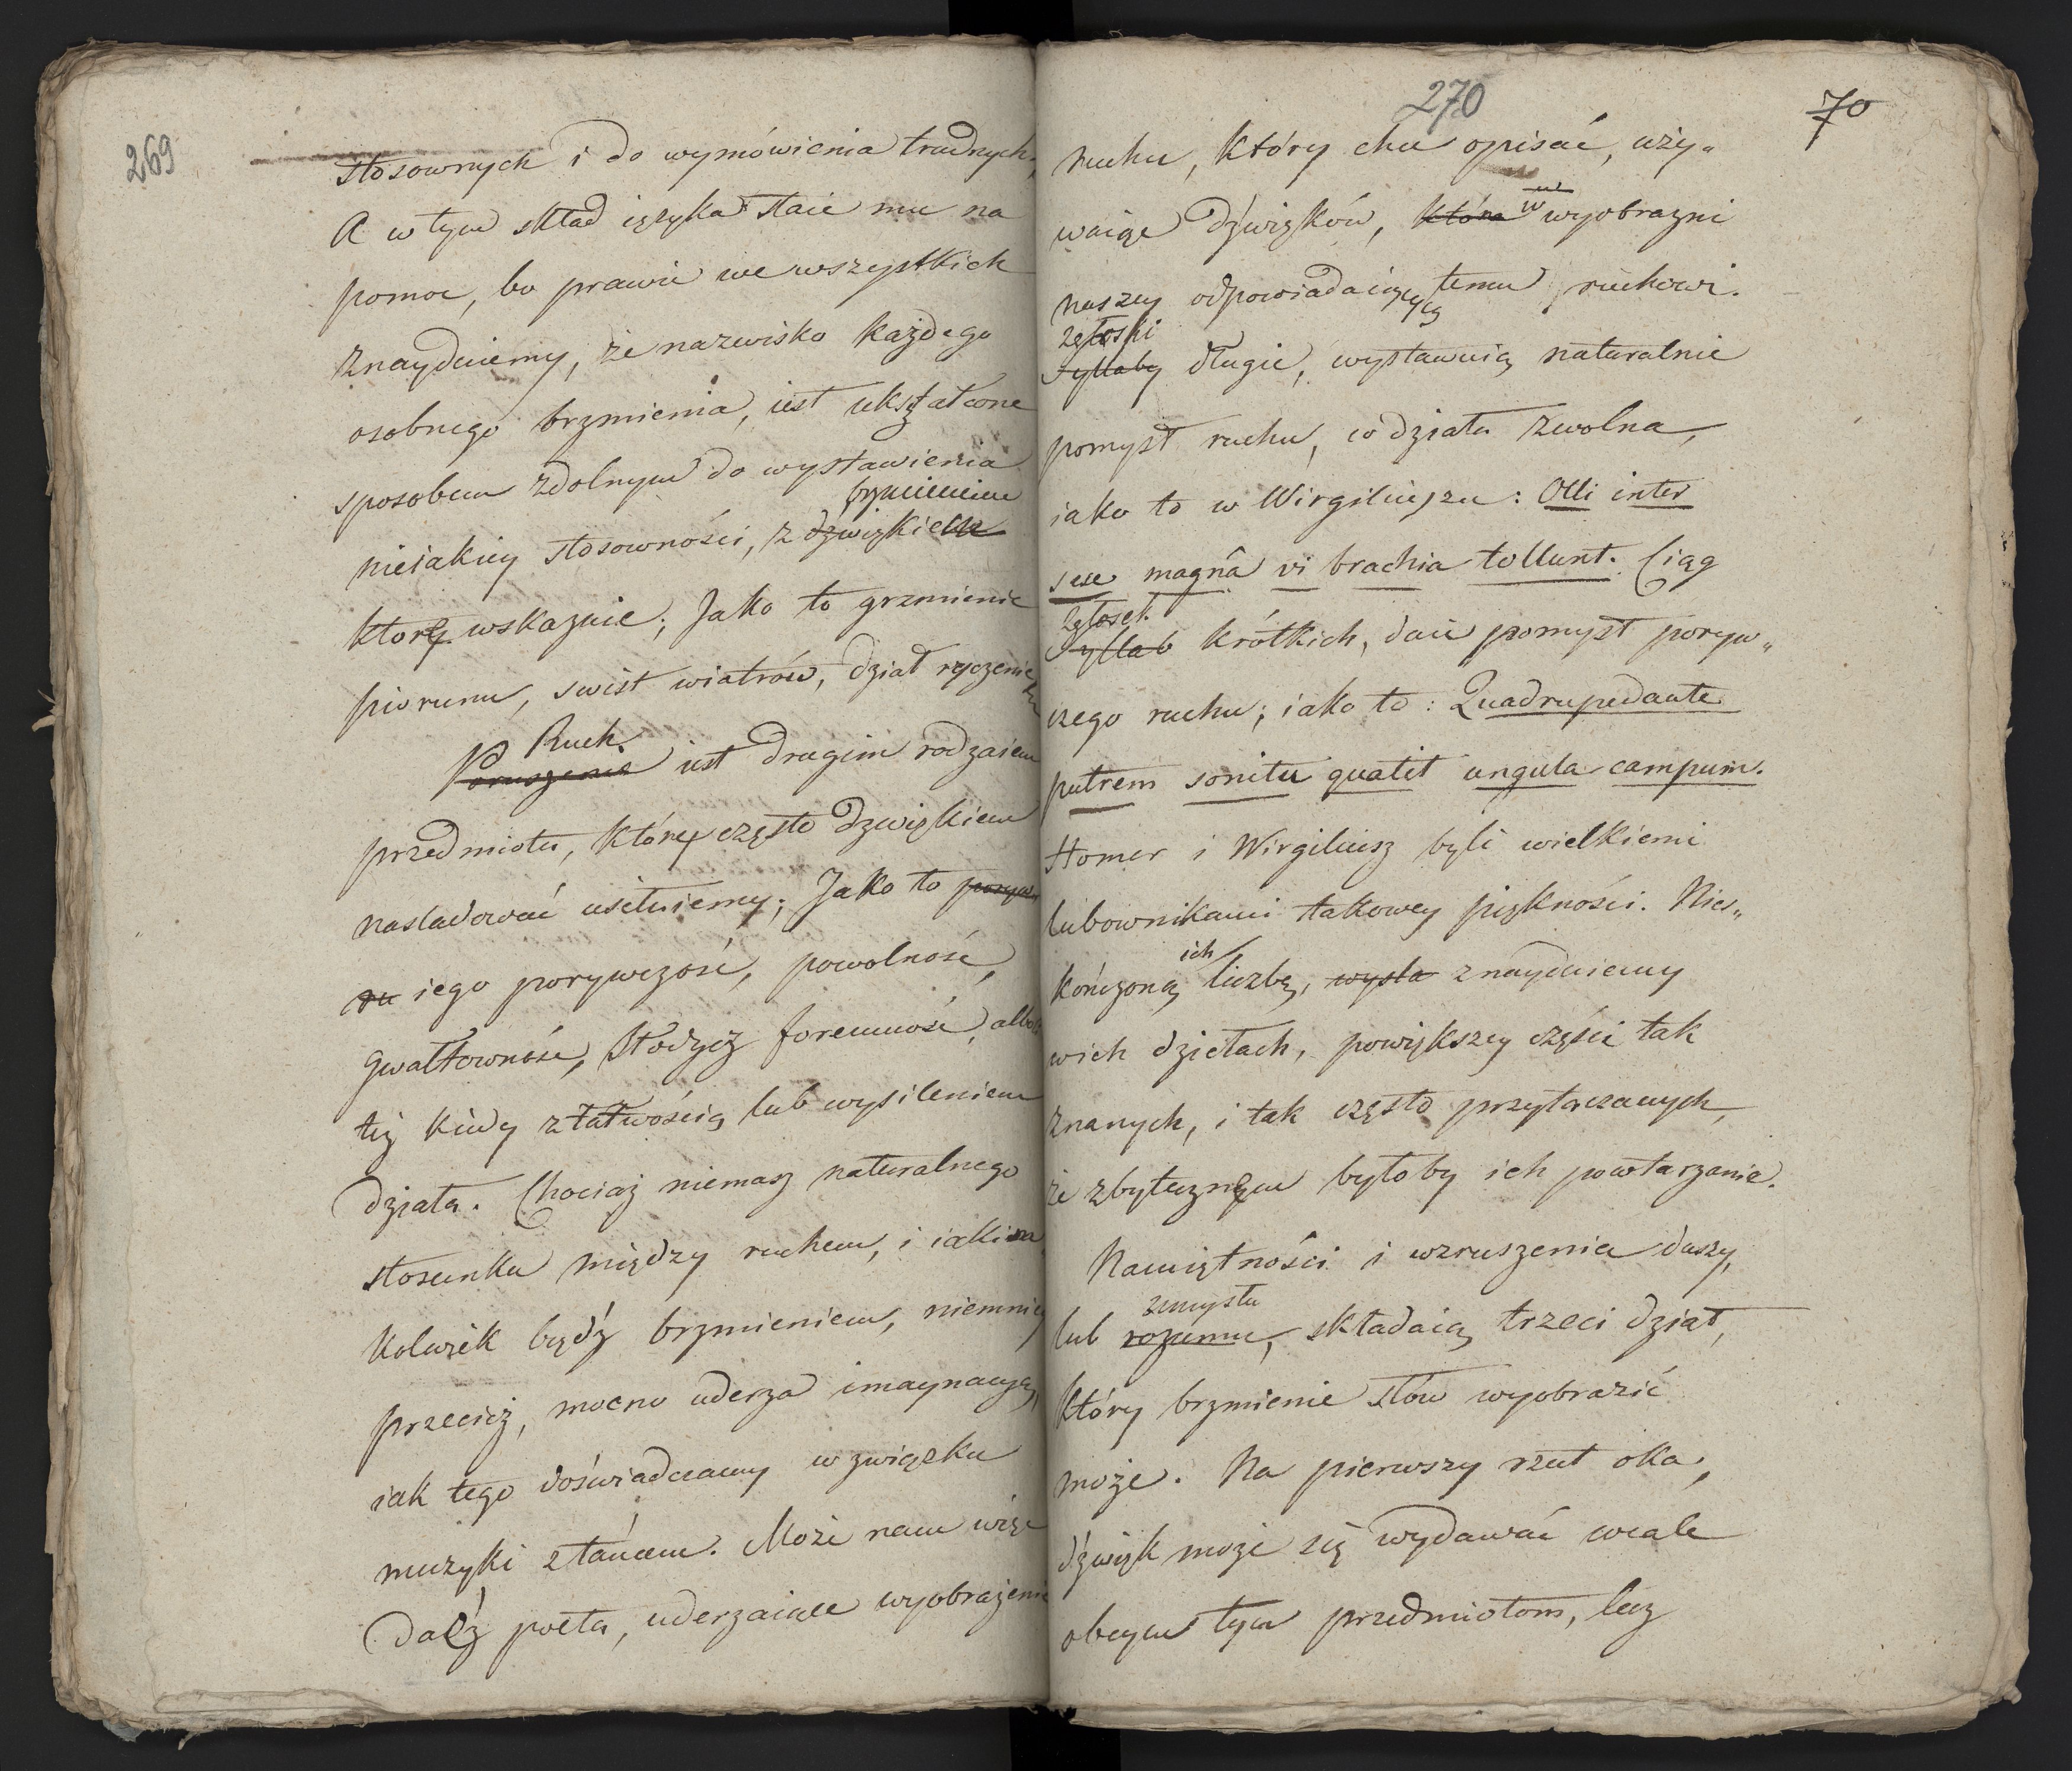 269
stosownych i do wymówienia trudnych,
A w tym skład ięzyka staie mu na
pomoc, bo prawie we wszystkich
znaydziemy, że nazwisko każdego
osobnego brzmienia, iest ukształcone
sposobem zdolnym do wystawienia
brzmieniem
nieiakiey stosowności, z dźwiękiem
które wskazuie; Jako to grzmienie
piorunu, swist wiatrów, dział ryczenie
Ruch
Poruszenie iest drugim rodzaiem
przedmiotu, który często dzwiękiem
nasladować usiłuiemy; Jako to porywu
iego porywczość, powolność,
gwałtowność, słodycz foremność, albo
też kiedy z łatwością lub wysileniem
działa. Chociaż niemasz naturalnego
stosunku między ruchem, i iakim
kolwiek bądź brzmieniem, niemniey
przecież, mocno uderza imaynacyą,
iak tego doświadczamy w związku
muzyki z tańcem. Może nam więc
dać poeta, uderzaiące wyobrażenie
270
70
ruchu, który chce opisać, uży„
waiąc dźwięków, które w wyobrazni
naszey odpowiadaiących temu ruchowi.
zgłoski
Syllaby długie, wystawuią naturalnie
pomysł ruchu, co działa zwolna,
iako to w Wirgiliuszu: Olli inter
sese magnâ vi brachia tollunt. Ciąg
zgłosek
Syllab krótkich, daie pomysł poryw„
czego ruchu; iako to: Quadrupedante
putrem sonitu quatit ungula campum.
Homer i Wirgiliusz byli wielkiemi
lubownikami takowey piękności. Nies„
ich
kończoną liczbę, wysta znaydziemy
wich dziełach, powiększey części tak
znanych, i tak często przytaczanych,
że zbytecznem byłoby ich powtarzanie.
Namiętności i wzruszenia duszy,
zmysłu
lub rozumu, składaią trzeci dział,
który brzmienie słów wyobrazić
może. Na pierwszy rzut oka,
dźwięk może się wydawać wcale
obcym tym przedmiotom, lecz